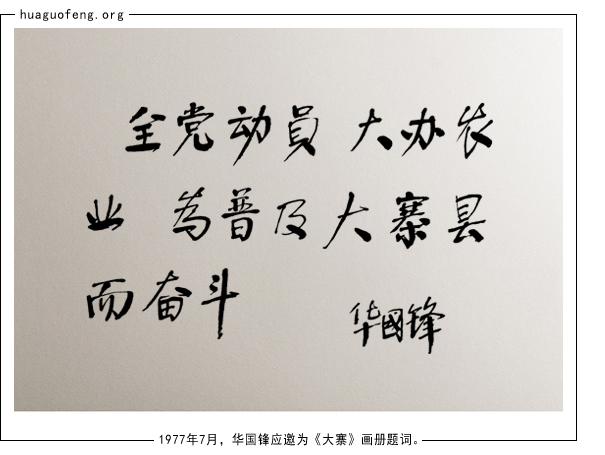 huaguofeng.org
全党动員 大办农
业 為普及大寨县
而奋斗
华國锋
1977年7月，华国锋应邀为《大寨》画册题词。